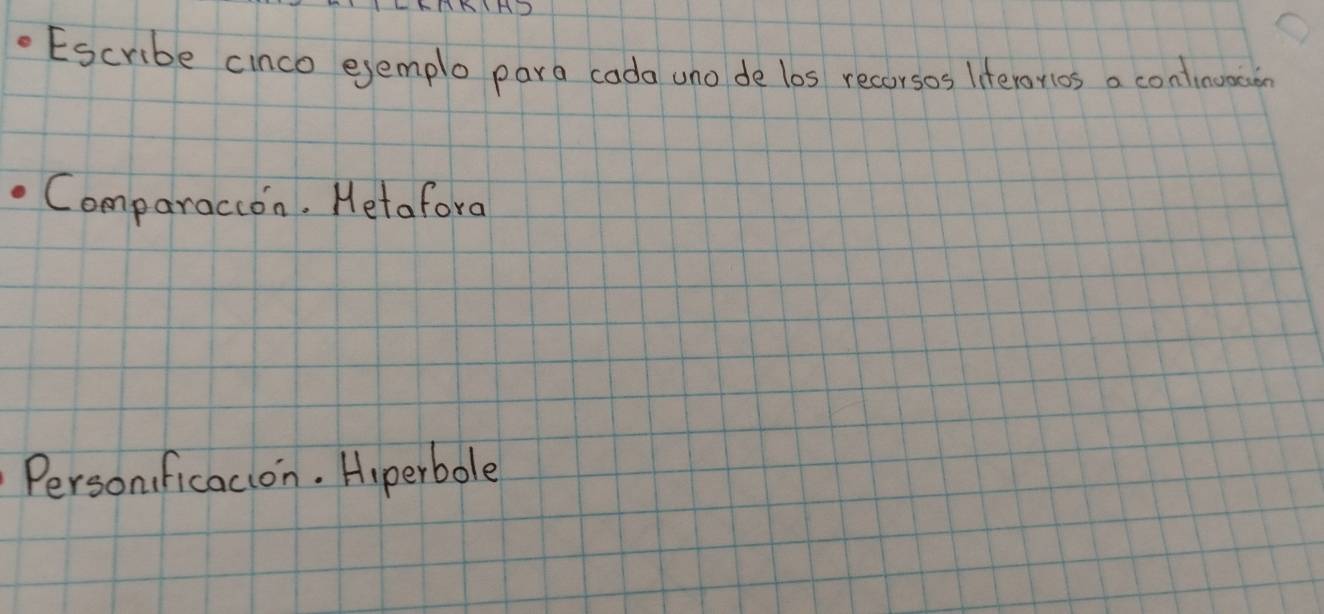 • Escribe cinco ejemplo para cada uno de los recursos literarios a continuación
• Comparación. Metafora
• Personificación. Hiperbole